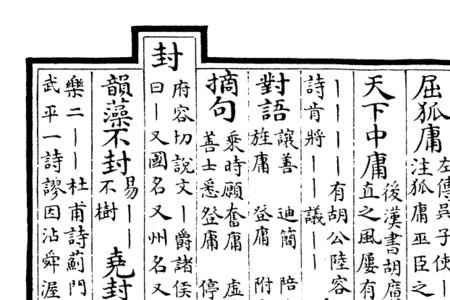 屈狐庸
左傳吳子使丨
注狐庸巫臣之
天下中庸
後漢書胡廣
直之風屢有
丨丨丨丨有胡公陸容
詩肯將丨丨議丨丨
對語
讓善 迪簡 陪
旌庸 登庸 附
摘句
乘時顧奮庸 虛
善士悉登庸 停
封
府容切說文丨爵諸侯
曰丨又國名又州名又
韻藻不封
易丨丨
不樹
堯封
樂二丨丨杜甫詩薊門
武平一詩謬因沾舜渥